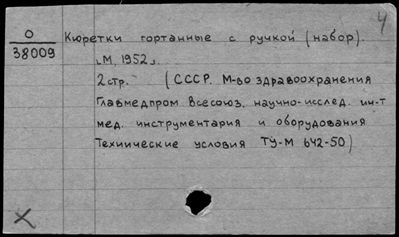 4
О
38009
Кюретки гортанные с ручкой (набор).
[М, 1952].
2стр. (СССР. М-во здравоохранения
Главмедпром. Всесоюз. научно-исслед. ин-т
мед. инструментария и оборудования
Технические условия ТУ-М 642-50)
X